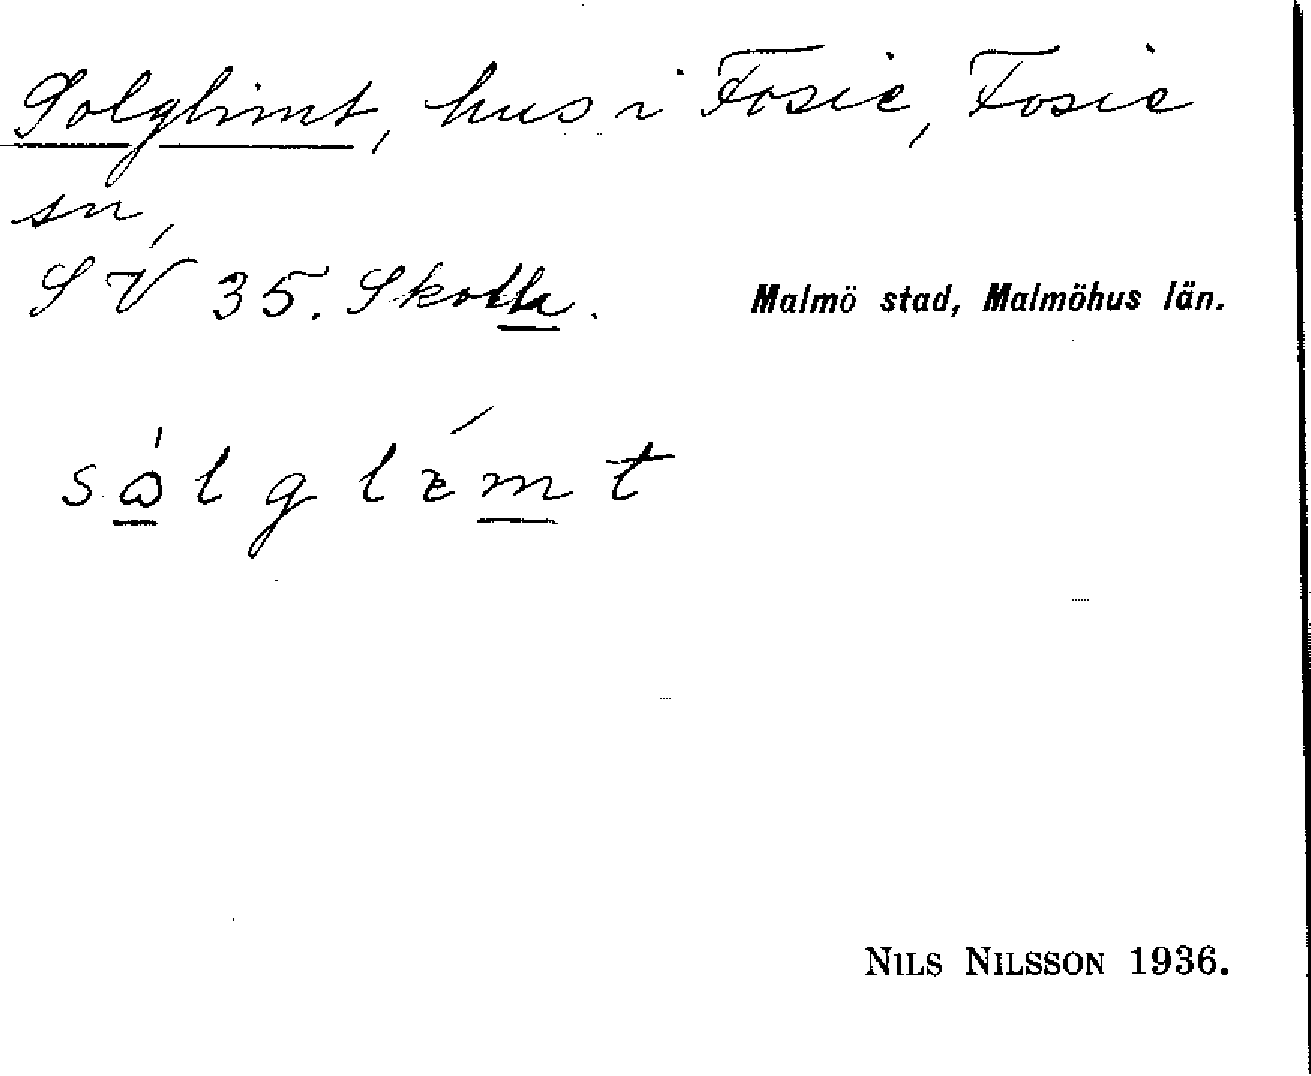 Solglimt, hus i Fosie, Fosie
sn,
SV 35. Skotte.
Malmö stad, Malmöhus län.
NILS NILSSON 1936.